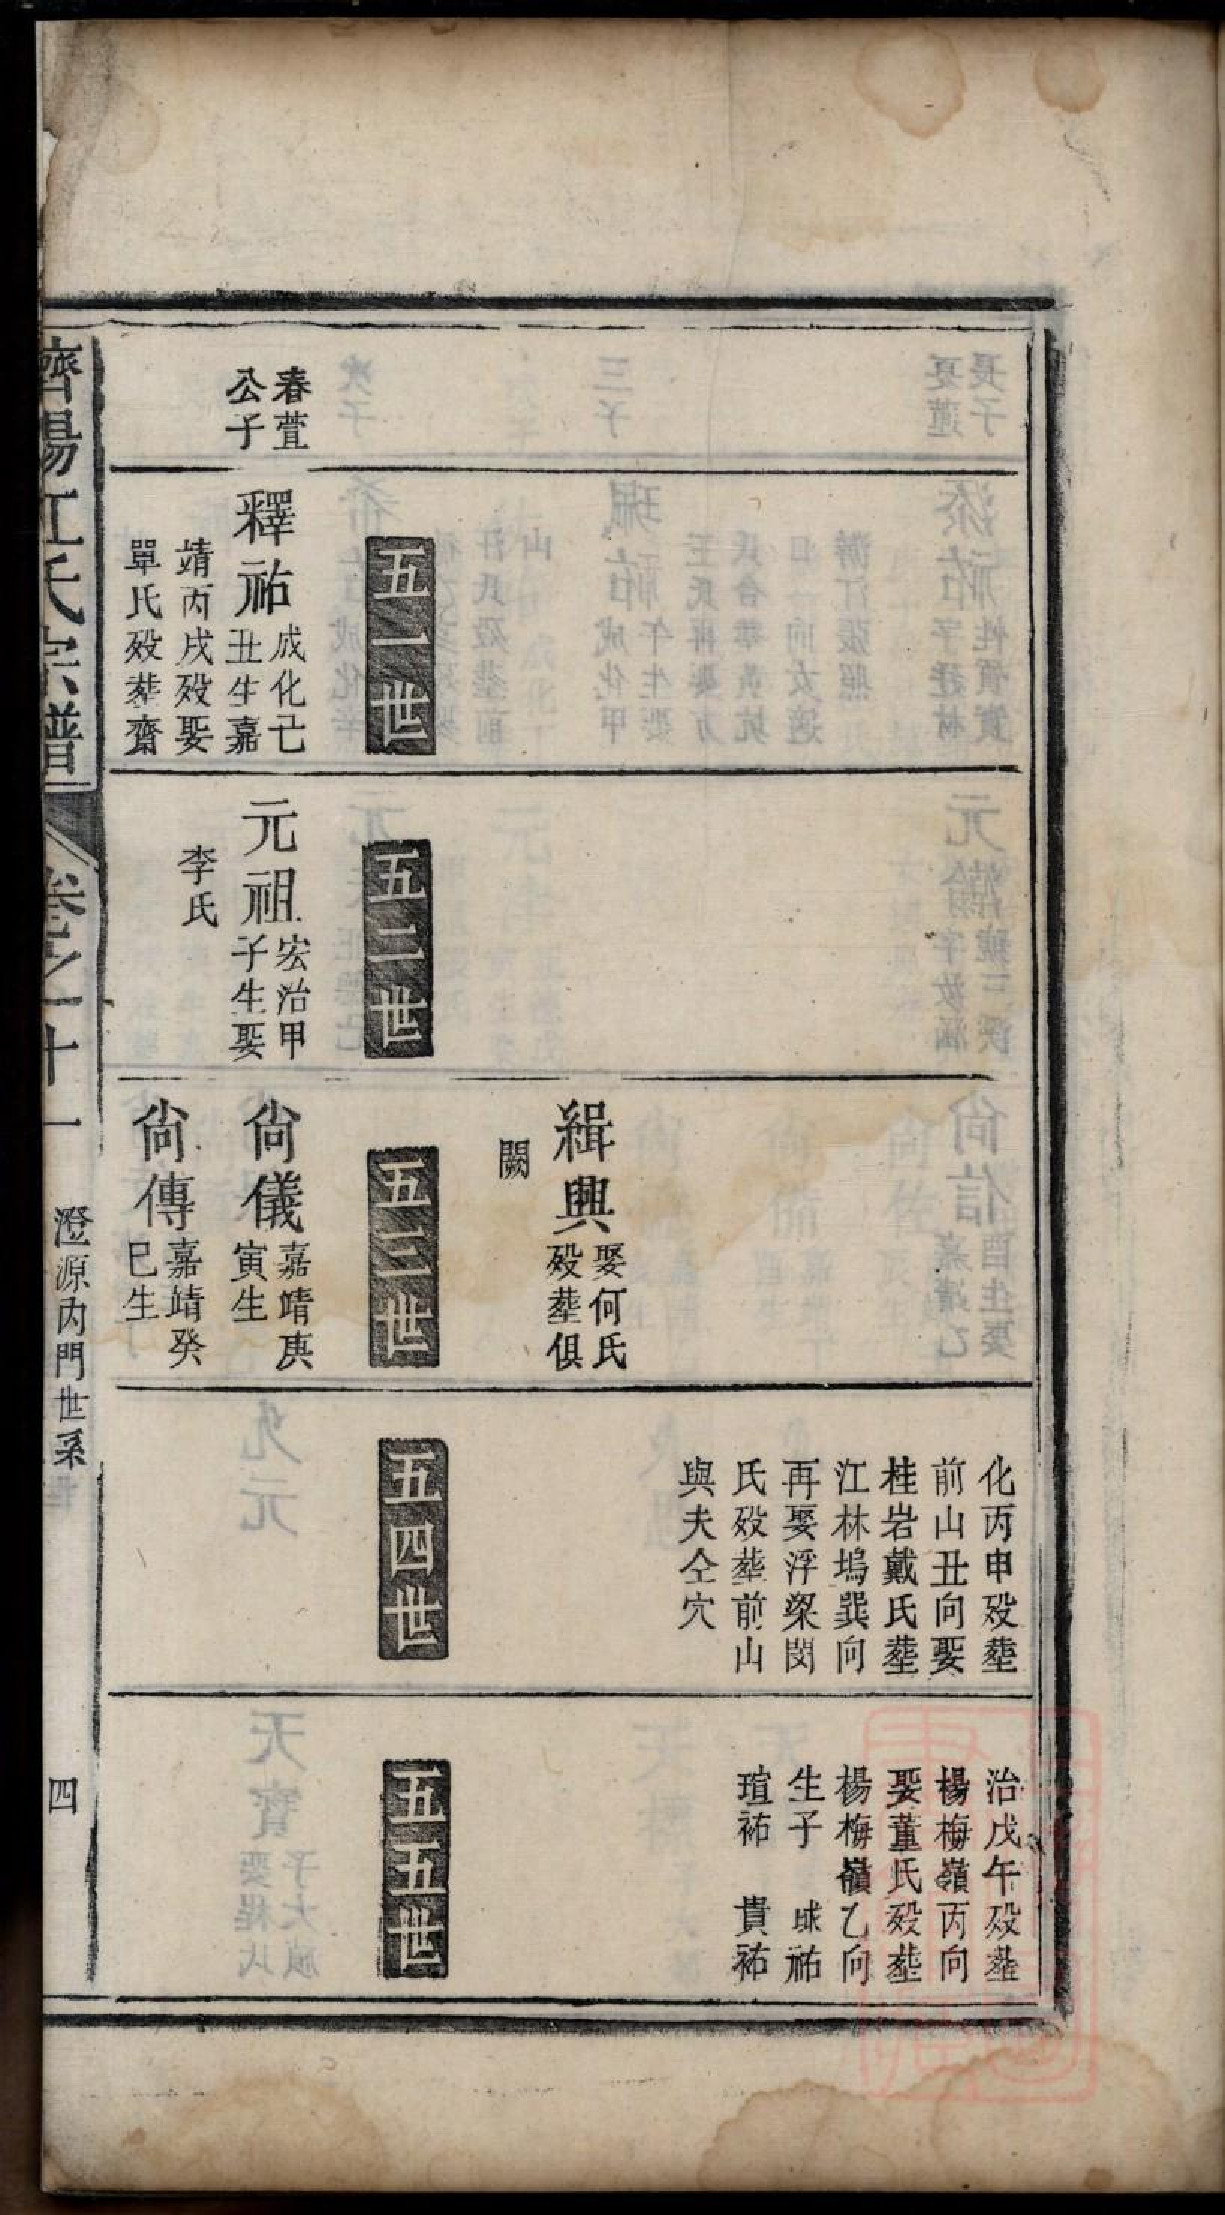 緝興
娶何氏
殁塟俱
闕
化丙申殁塟
前山丑向娶
桂岩戴氏塟
江林塢巽向
再娶浮梁閔
氏殁塟前山
與夫仝穴
治戊午殁塟
楊梅嶺丙向
娶董氏殁塟
楊梅嶺乙向
生子 球祐
瑄祐 貴祐
五一世
五二世
五三世
五四世
五五世
春萱
公子
釋祐
成化己
丑生嘉
靖丙戌殁娶
單氏殁塟齋
元祖
宏治甲
子生娶
李氏
尙儀
嘉靖庚
寅生
尙傳
嘉靖癸
巳生
濟陽江氏宗譜
卷之十一
澄源內門世系
四